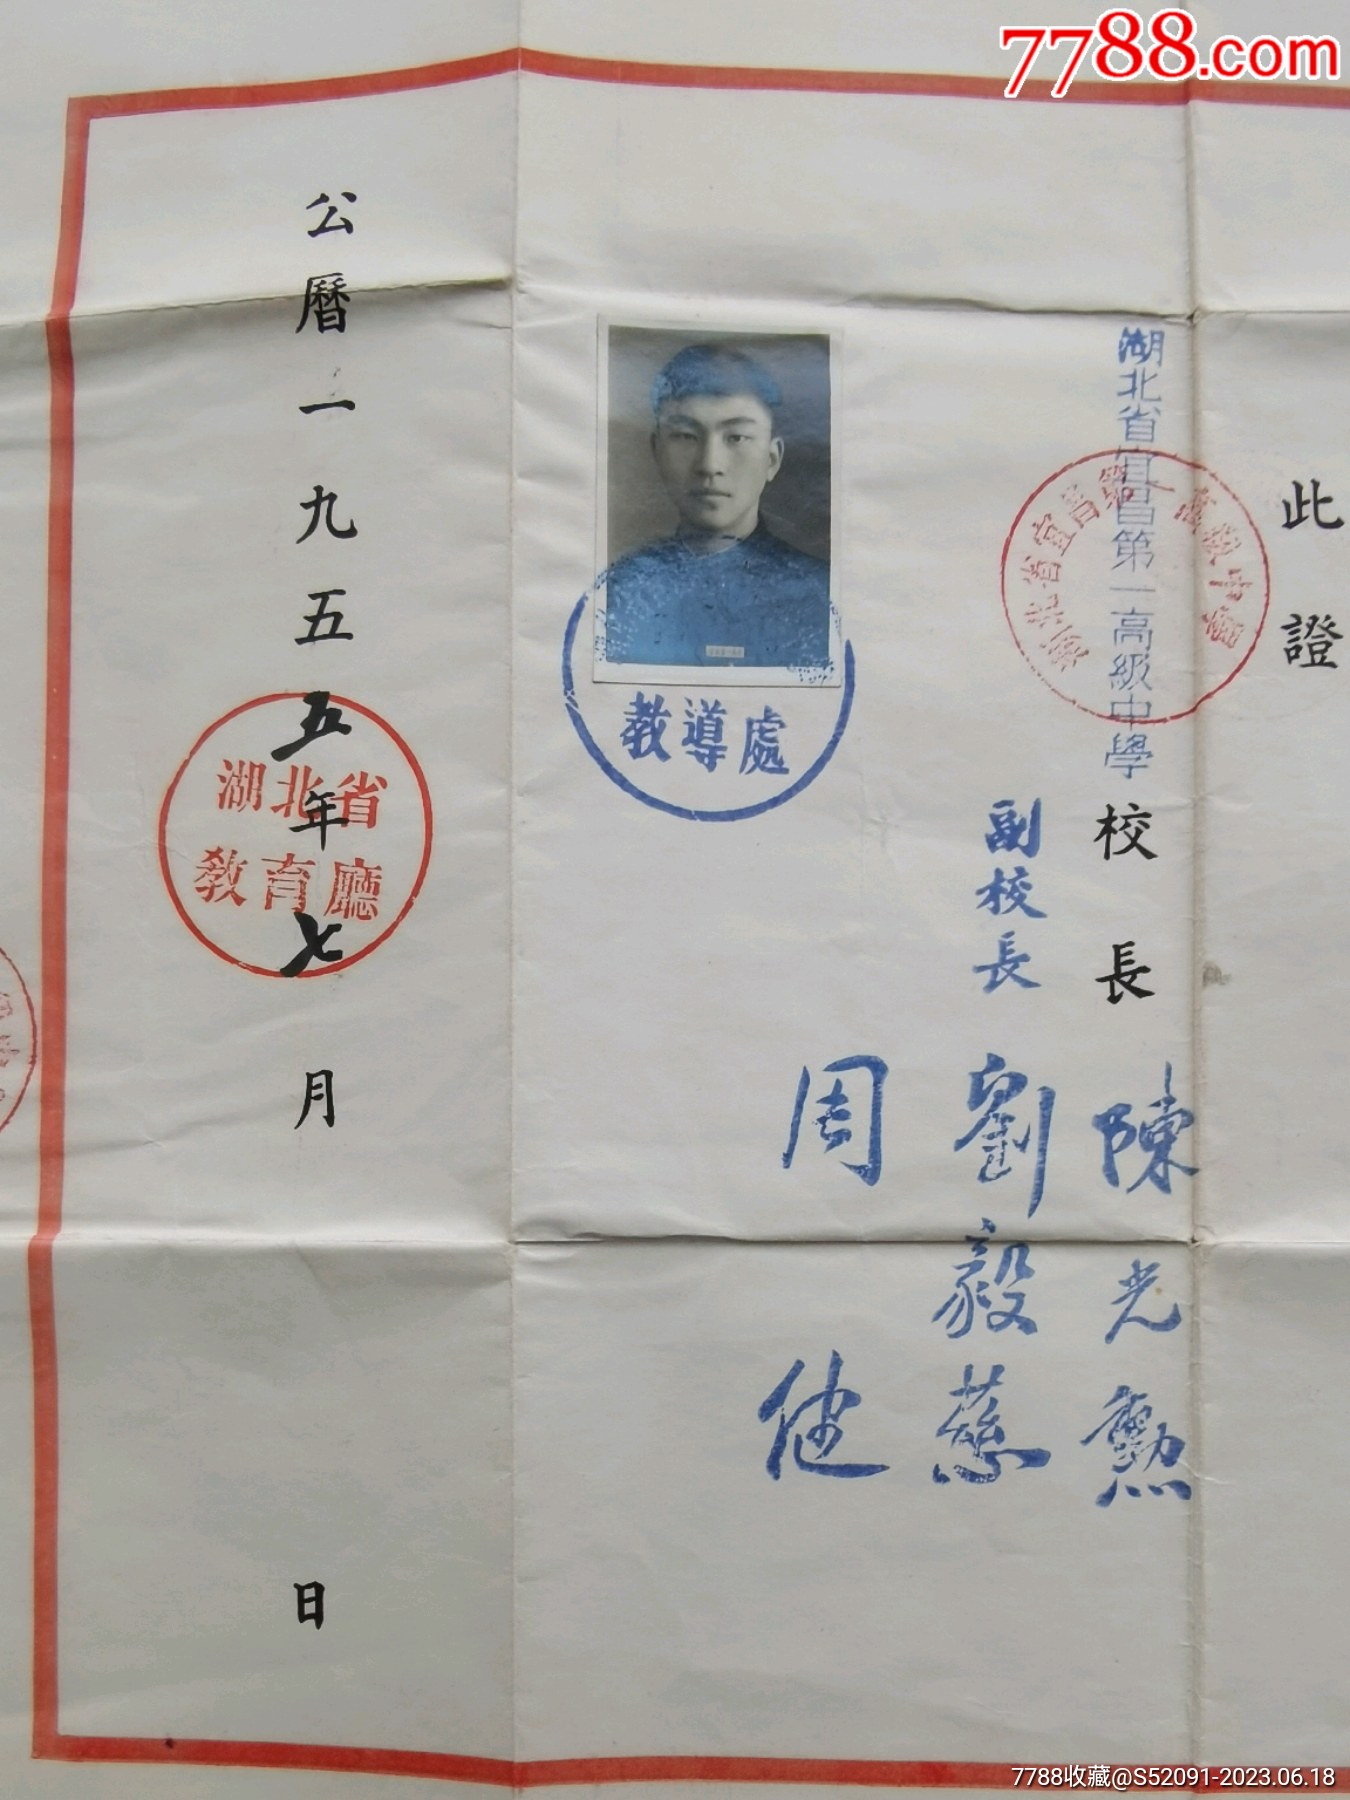 7788.com
此證
湖北省宜昌第一高級中學校長 陳光勲
湖北省宜昌第一高級中學
副校長 劉毅慈
周健
教導處
公曆一九五五年七月 日
湖北省
教育廳
7788收藏@S52091-2023.06.18